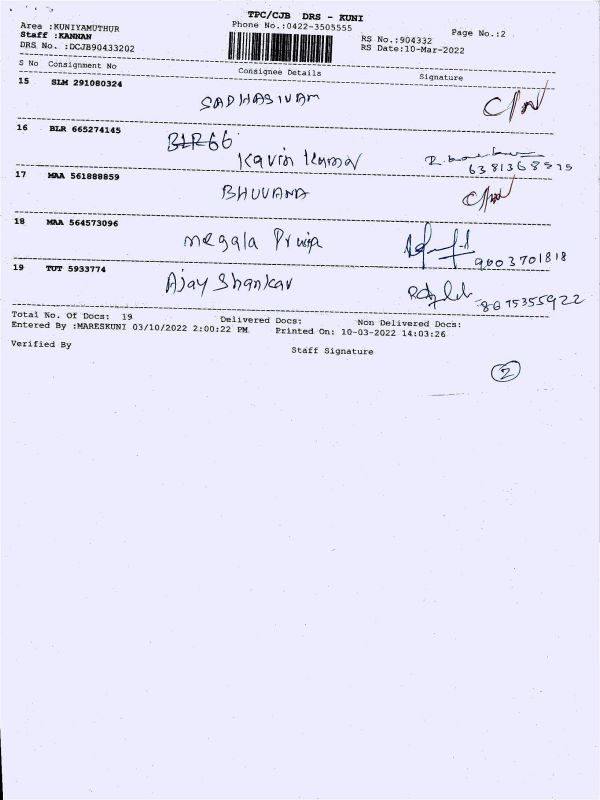 TPC/CJB DRS - KUNI
Area :KUNIYAMUTHUR Phone No.:0422-3505555 Page No.:2
Staff :KANNAN RS No.:904332
DRS No. :DCJB90433202 RS Date:10-Mar-2022
S No Consignment No Consignee Details Signature
15 SLM 291080324
SADHASIVAM
16 BLR 665274145
BLR66
Kavin Kumar
6381368575
17 MAA 561888859
BHUVANA
18 MAA 564573096
Megala Priya
9003701818
19 TUT 5933774
Ajay Shankar
8675355922
Total No. Of Docs: 19 Delivered Docs: Non Delivered Docs:
Entered By :MARESKUNI 03/10/2022 2:00:22 PM Printed On: 10-03-2022 14:03:26
Verified By Staff Signature
2